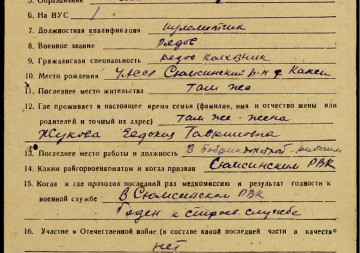 6. На ВУС 1
7. Должностная квалификация пулеметчик
8. Военное звание рядов
9. Гражданская специальность рядов колхозник
10. Место рождения УАССР Сюмсинский р-н д. Какси
11. Последнее место жительства там же
12. Где проживает в настоящее время семья (фамилия, имя и отчество жены или
родителей и точный их адрес) там же - жена
Жукова Евдокия Гавриловна
13. Последнее место работы и должность В рабочий
14. Каким райгорвоенкоматом и когда призван Сюмсинским РВК
15. Когда и где проходил последний раз медкомиссию и результат годности к
военной службе В Сюмсинском РВК
Годен к строев. службе
16. Участие в Отечественной войне (в составе какой последней части в качеств
нет